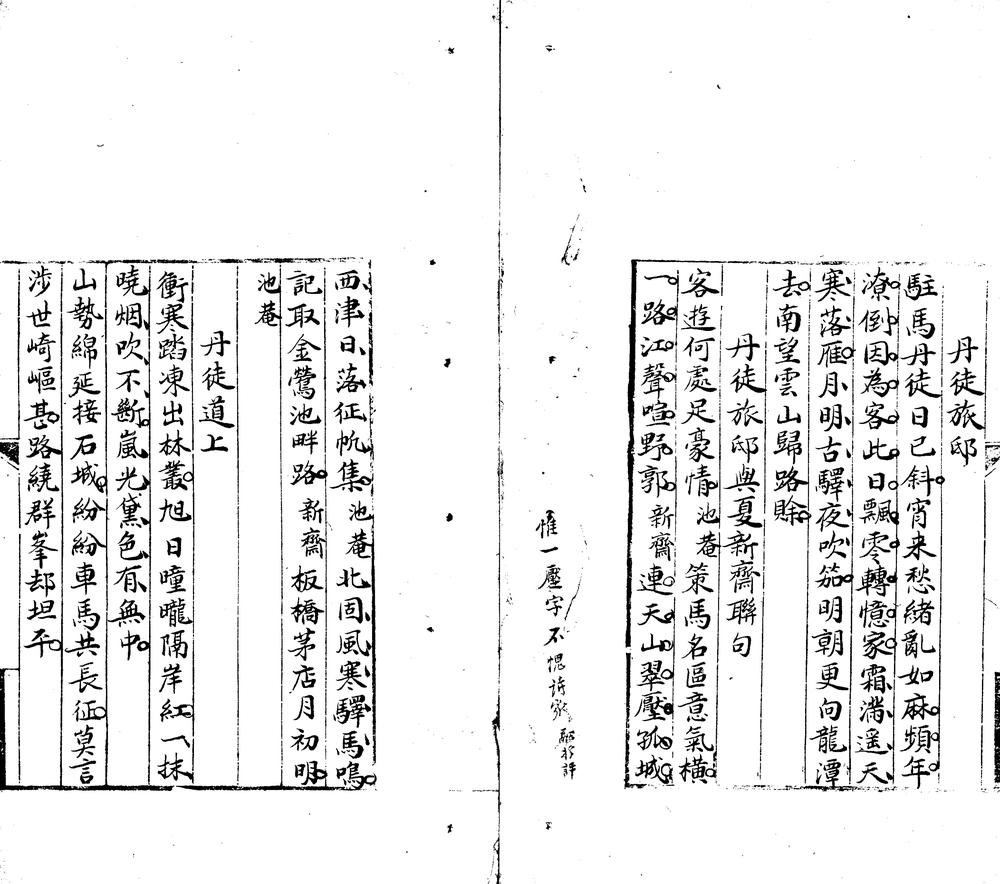 丹徒旅邸
駐馬丹徒日已斜宵来愁緒亂如麻頻年
潦倒因為客此日飄零轉憶家霜滿遥天
寒落雁月明古驛夜吹笳明朝更向龍潭
去南望雲山歸路賖
丹徒旅邸與夏新齋聯句
客遊何處足豪情池菴策馬名區意氣橫
一路江聲喧野郭新齋連天山翠壓孤城
惟一壓字不愧詩家
西津日落征帆集池菴北固風寒驛馬鳴
記取金鶯池畔路新齋板橋茅店月初明
池菴
丹徒道上
衝寒踏凍出林叢旭日曈曨隔岸紅一抹
曉烟吹不斷嵐光黛色有無中
山勢綿延接石城紛紛車馬共長征莫言
涉世崎嶇甚路繞群峯却坦平